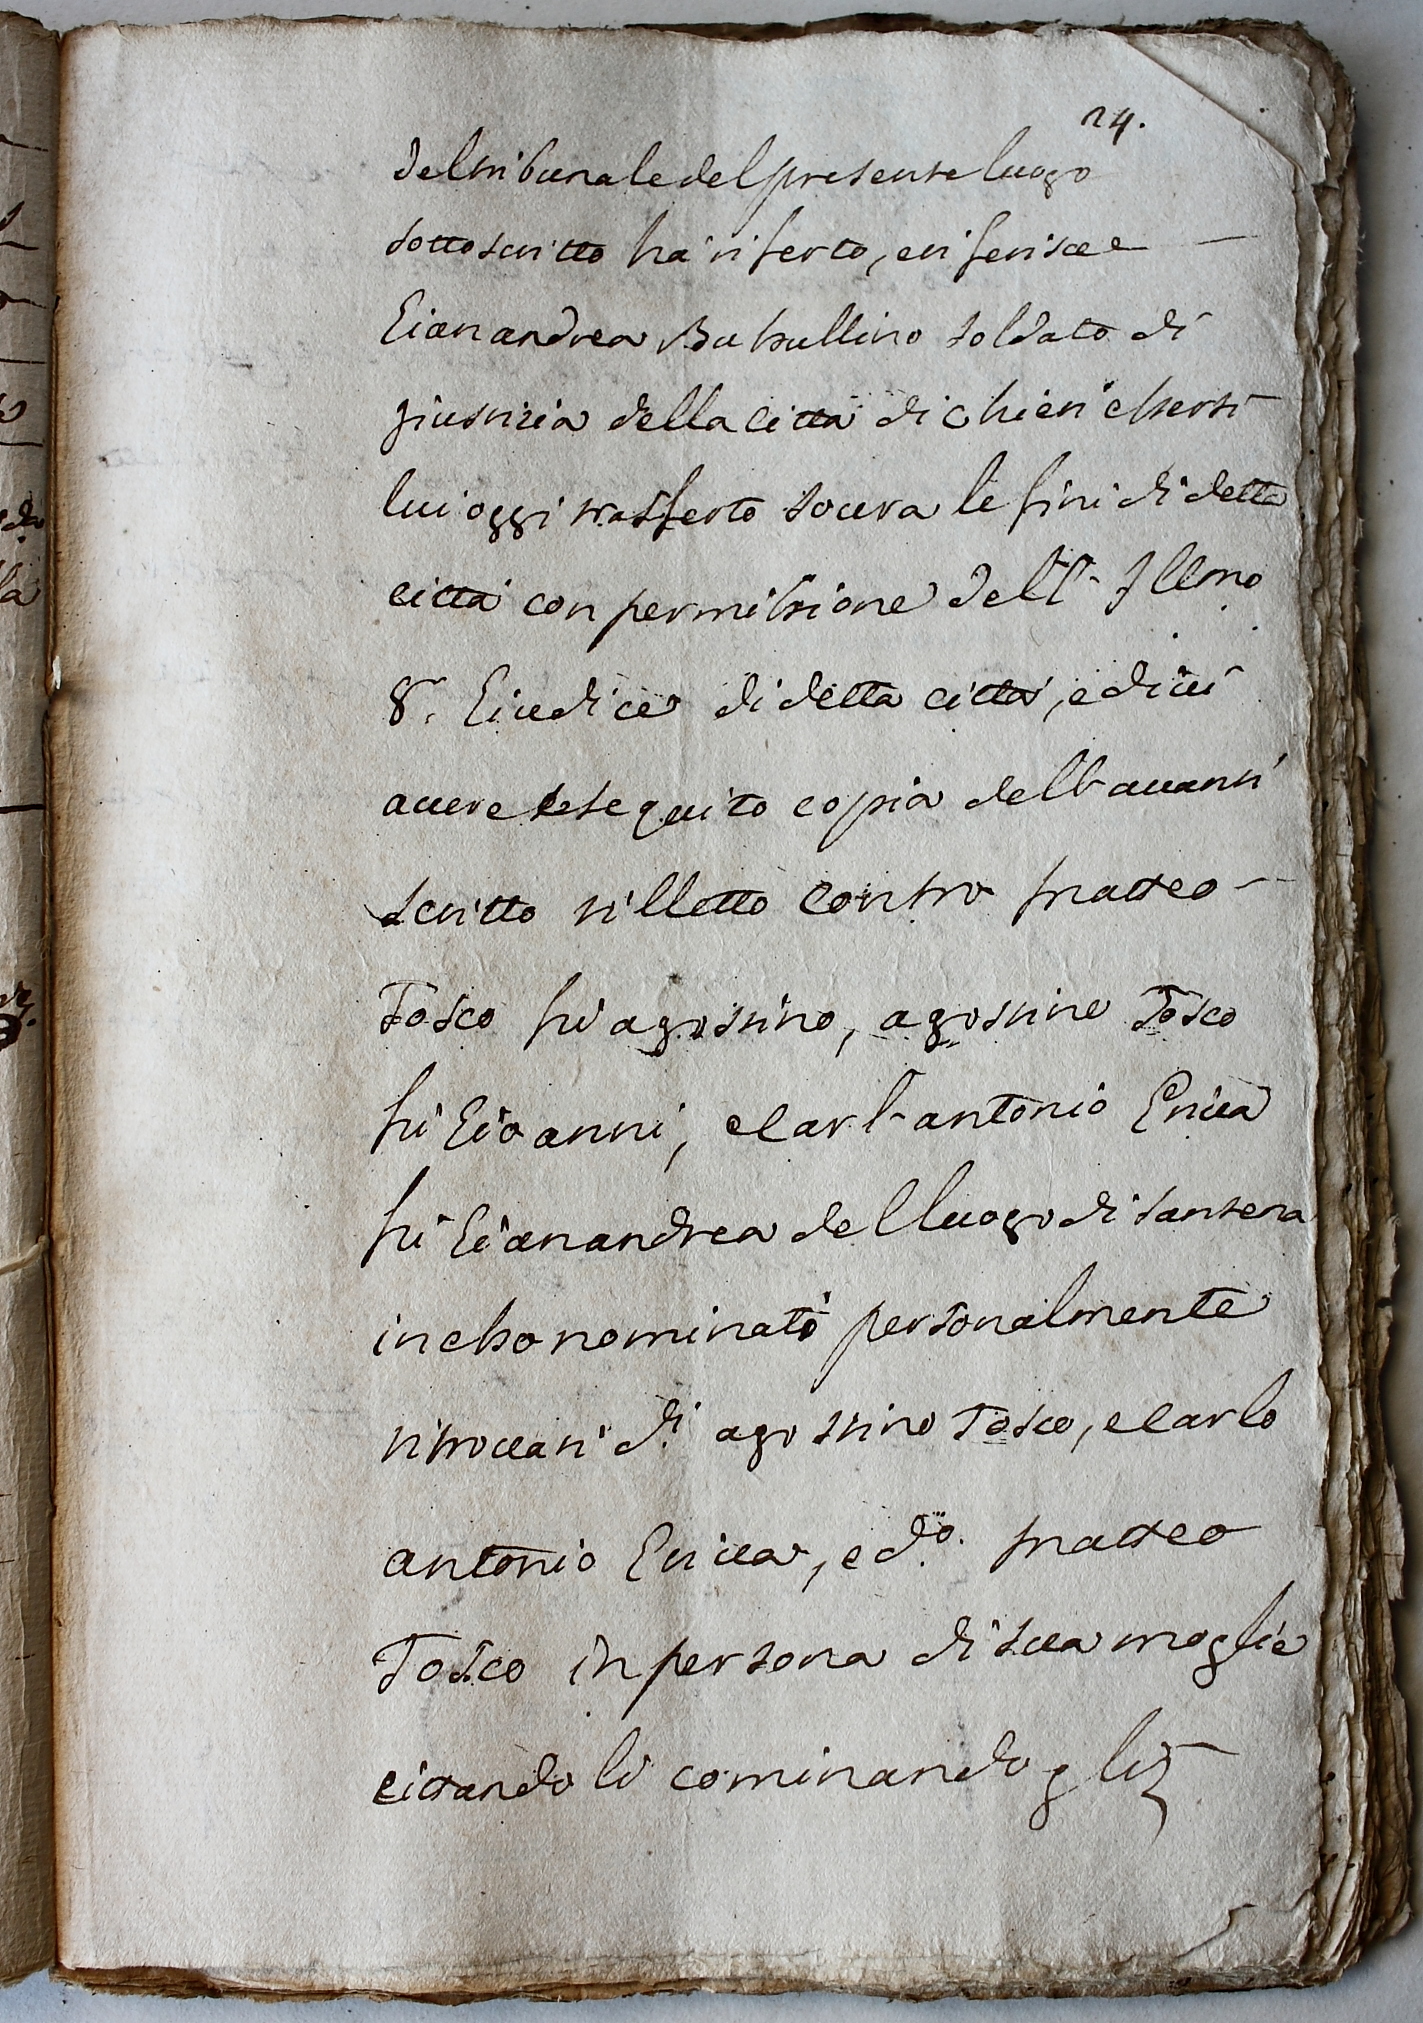 24.
del tribunale del presente luogo
sottoscritto ha riferto, e riferisce
Gianandrea Bussullino soldato di
giustizia della città di Chieri essersi
lui oggi trasferto sovra le fini di detta
città con permissione dell' Illmo
Sr. Giudice di detta città, ed ivi
avere eseguito copia dell'avanti
scritto rilletto contro Matteo
Tosco fu agostino, agostino Tosco
fu Gioanni, e Carl'antonio Griva
fu Gianandrea del luogo di Santena
in esso nominati personalmente
ritrovati di agostino Tosco, e Carlo
antonio Griva, e do. Matteo
Tosco in persona di sua moglie
citandoli cominandogli